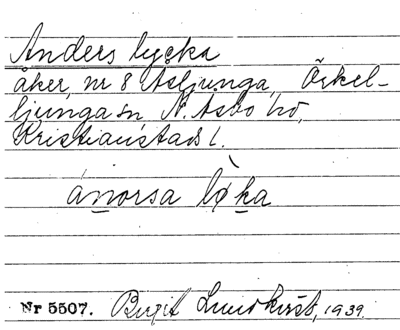 Anders lycka
åker, nr 8 Åsljunga, Örkel-
ljunga sn N. Åsbo hd,
Kristianstads l.
ánorsa lø̀ka
Nr 5507. Birgit Lundkvist, 1939